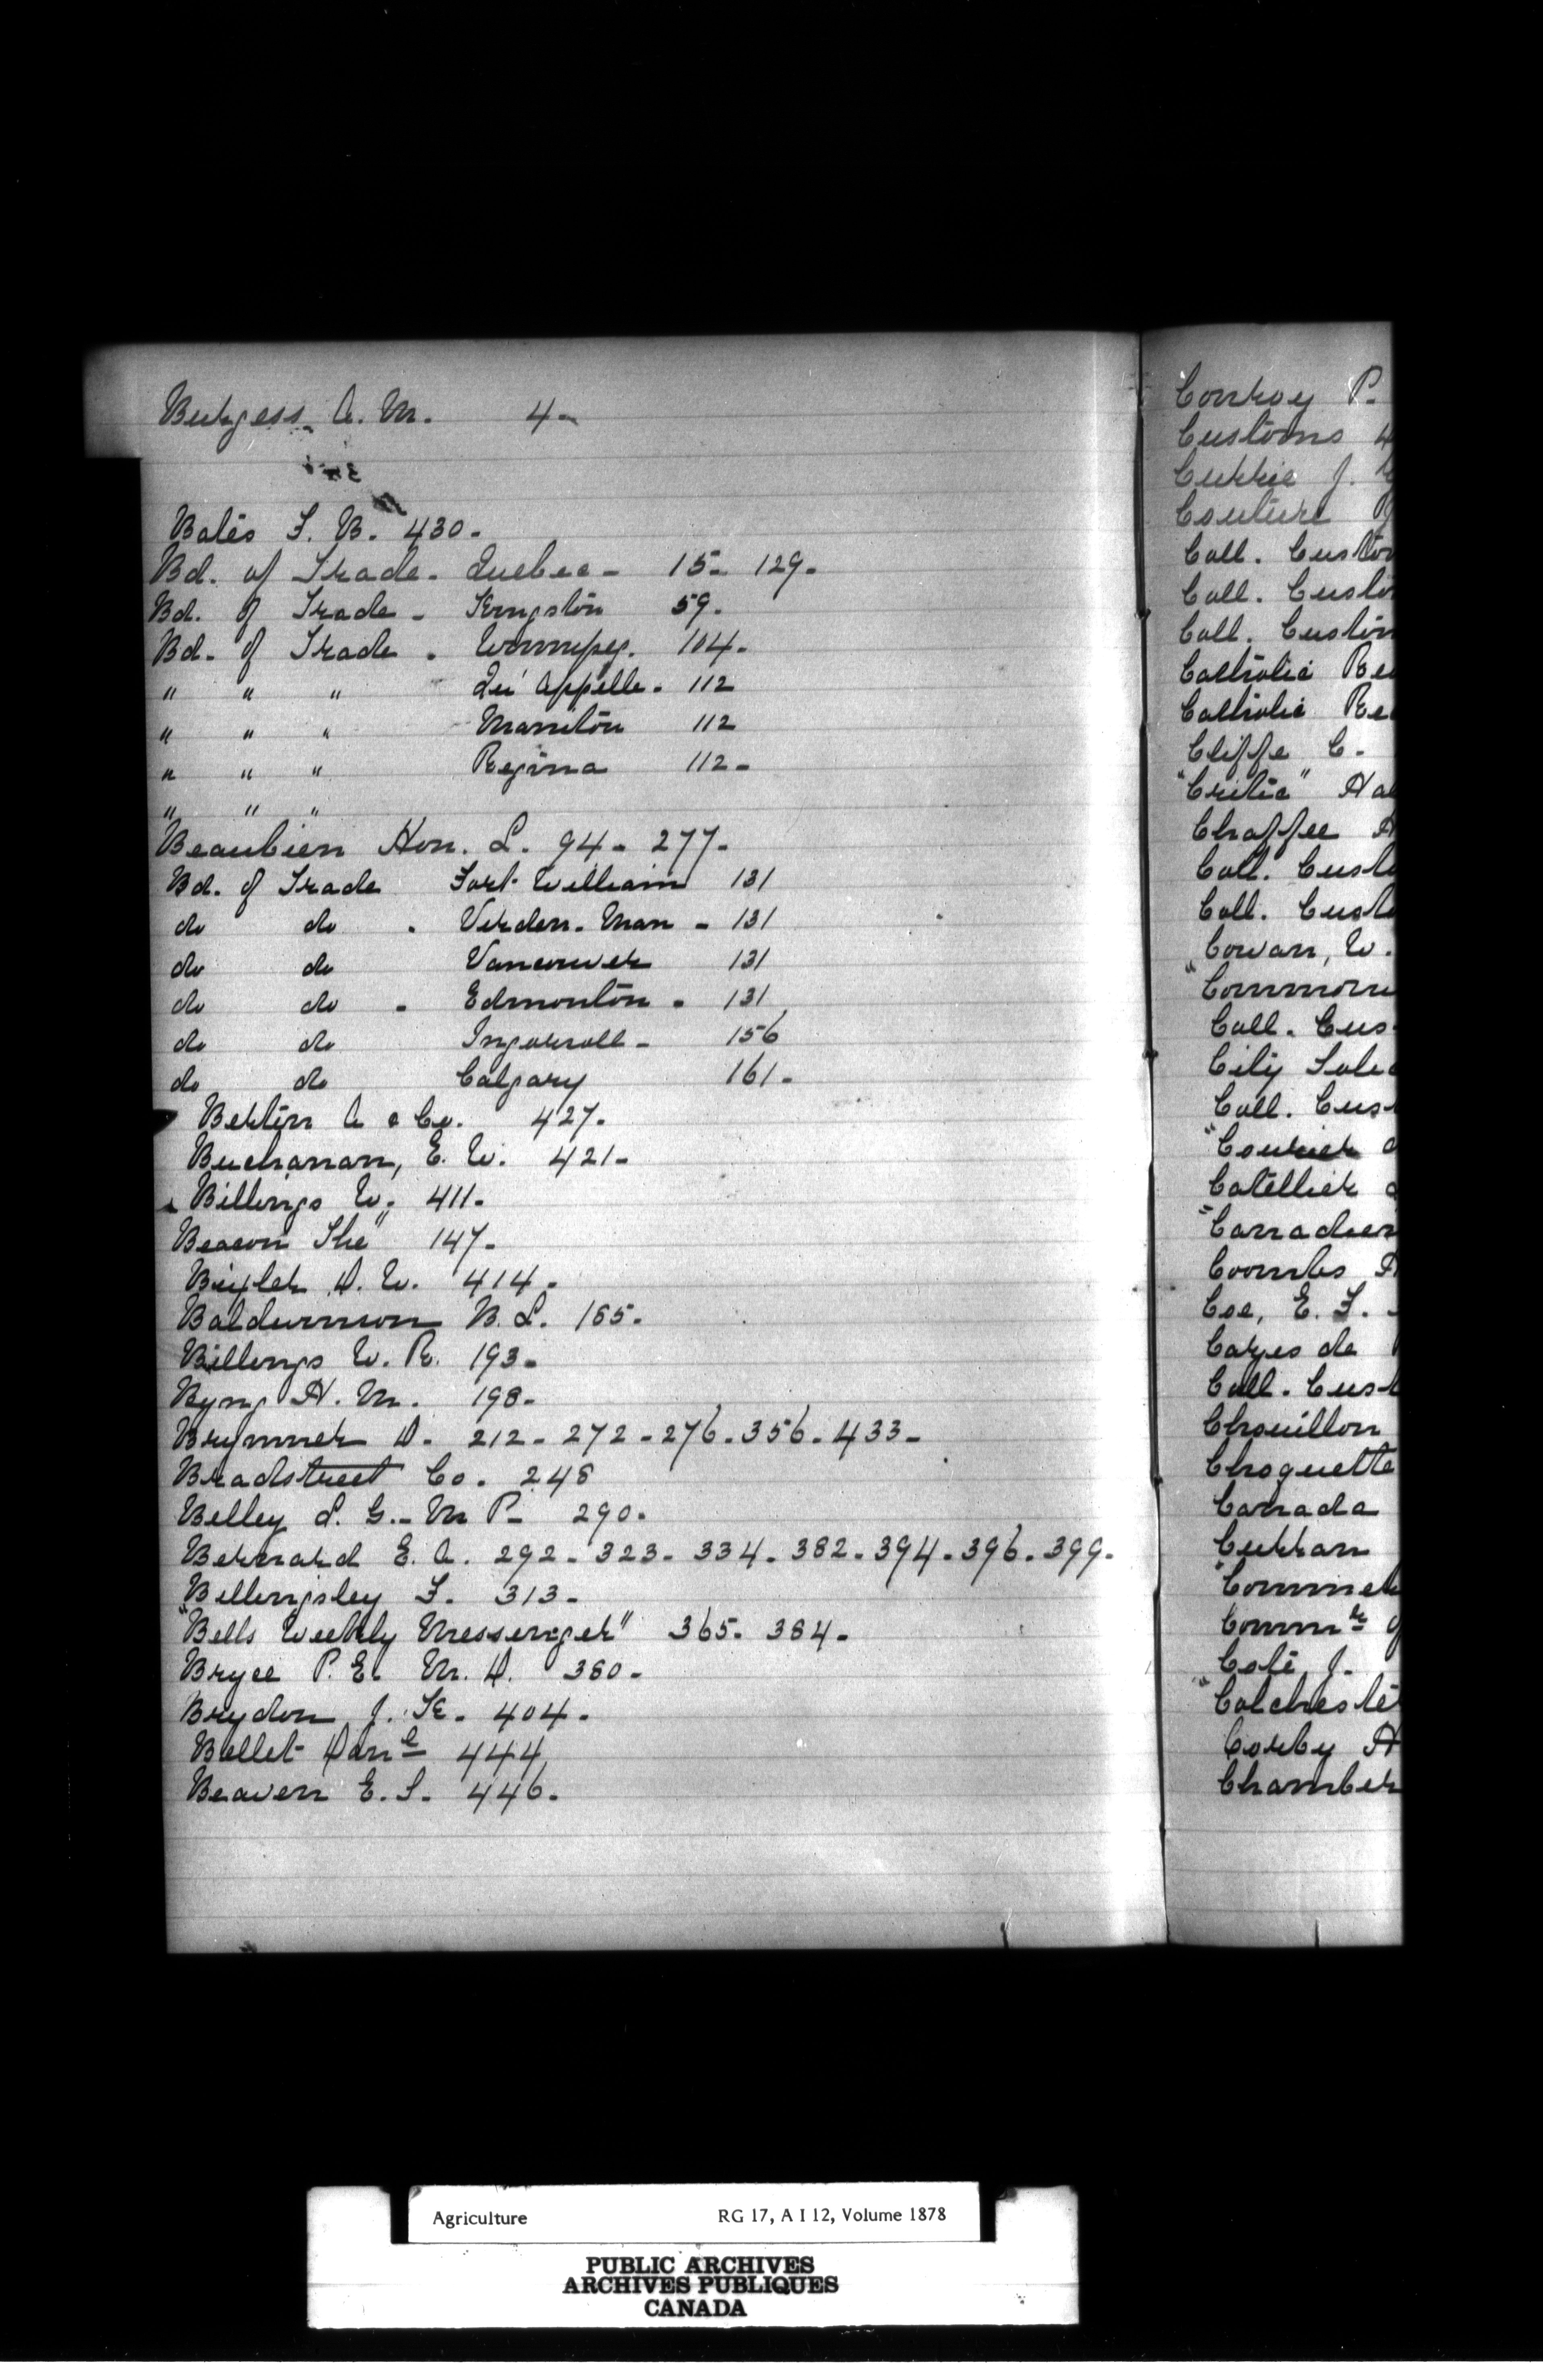 Burgess A. M. 4-
Bates F. B. 430-
Bd. of Trade- Quebec- 15- 129-
Bd. of Trade- Kingston 59-
Bd. of Trade- Winnipeg. 104-
" " " Qu'Appelle- 112
" " " Manitou 112
" " " Regina 112-
" " "
Beaubien Hon. L. 94- 277-
Bd. of Trade Fort William 131
do do - Virden. Man - 131
do do Vancouver 131
do do - Edmonton - 131
do do Ingersoll - 156
do do Calgary 161-
Bertin A & Co. 427-
Buchanan, E. W. 421-
Billings W. 411-
Beacon The" 147-
Bixler D. W. 414-
Balderson B. L. 165-
Billings W. R. 193-
Byng H. M. 198-
Brymner D- 212- 272- 276- 356- 433-
Bradstreet Co. 248
Belley L. G.- M P- 290-
Bernard E. A. 292- 323- 334- 382- 394- 396- 399-
Billingsley F. 313-
"Bells Weekly Messenger" 365- 384-
Bryce P. E. M. D. 380-
Brydon J. K. 404-
Bellet Danl 444
Beaven E. S. 446-
Conroy P.
Customs
Currie J.
Couture
Coll. Custom
Coll. Custo
Coll. Custom
Catholic Re
Catholic Re
Cliffe C-
"Critic" Ha
Chaffee
Coll. Custo
Coll. Custo
Cowan, W.
"Common
Coll. Cus
City
Coll. Cus
"Courier
Catellier
"Canadien
Coombs
Coe, E. F.
Cazes de
Coll. Cust
Chouillon
Choquette
Canada
Curran
"Commer
Commr
Coté J.
"Colcheste
Corby H
Chamber
Agriculture RG 17, A I 12, Volume 1878
PUBLIC ARCHIVES
ARCHIVES PUBLIQUES
CANADA